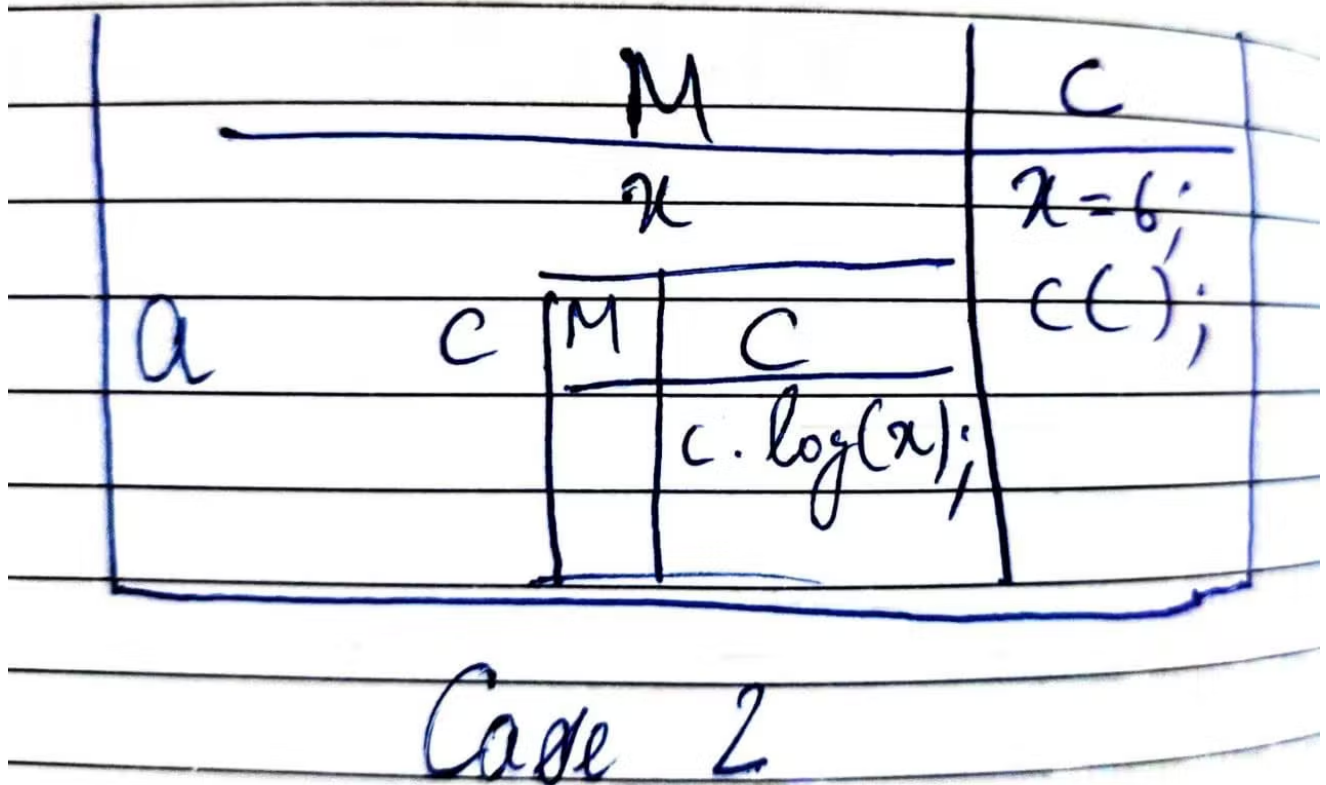 M C
x x = 6;
c();
a c M C
c. log(x);
Case 2